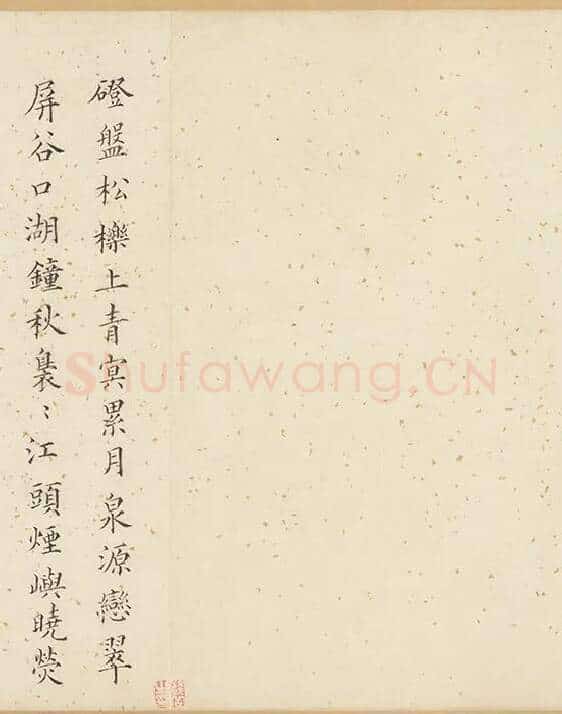 磴盤松櫟上青冥累月泉源戀翠
屏谷口湖鐘秋裊〻江頭煙嶼曉熒
Shufawang.CN